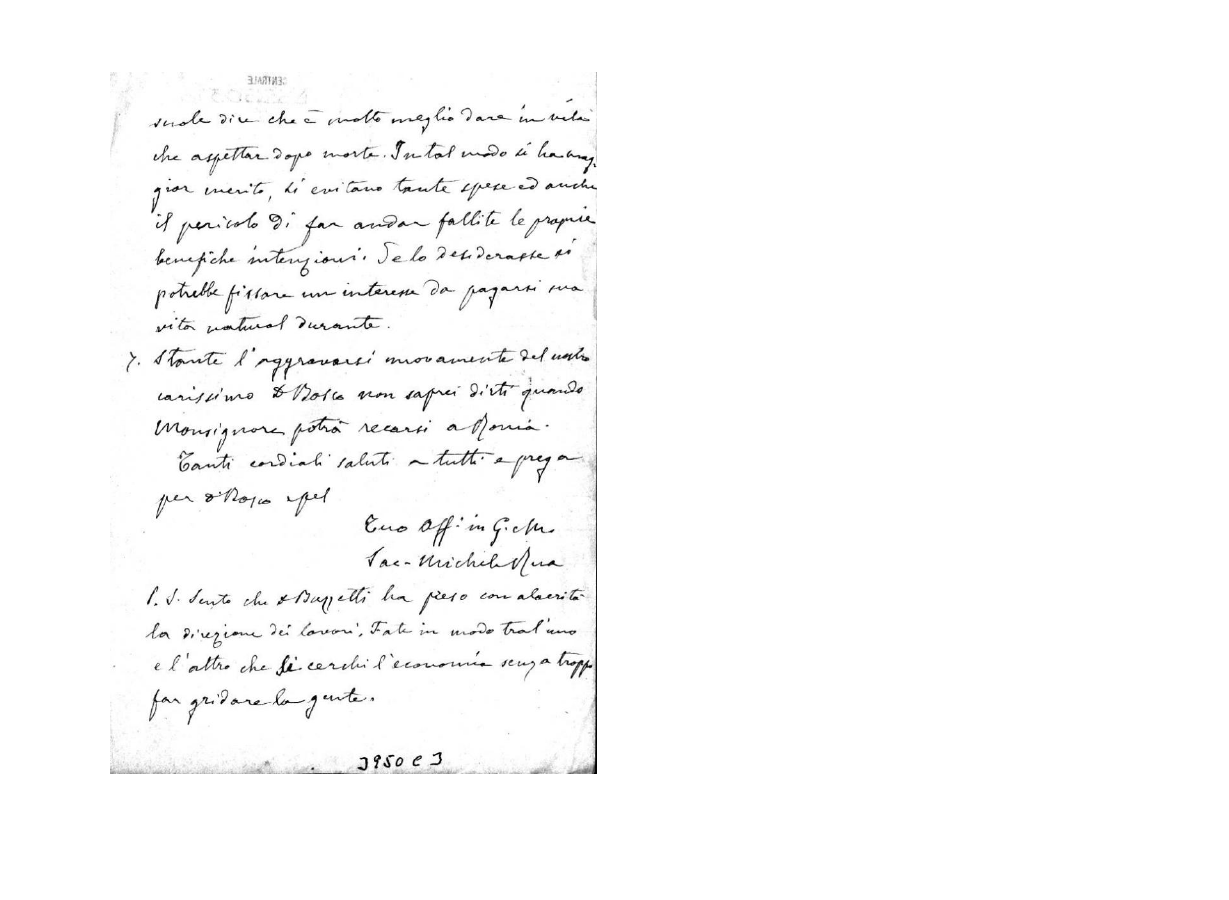 CENTRALE
suole dire che è molto meglio dare in vita
che aspettar dopo morte. In tal modo si ha mag-
gior merito, si evitano tante spese ed anche
il pericolo di far andar fallite le proprie
benefiche intenzioni. Se lo desiderasse si
potrebbe fissare un interesse da pagarsi sua
vita natural durante.
7. Stante l'aggravarsi nuovamente del nostro
carissimo D Bosco non saprei dirti quando
Monsignore potrà recarsi a Roma.
Tanti cordiali saluti a tutti e prega
per D Bosco e pel
Tuo Aff. in G. e M.
Sac. Michele Rua
P. S. Sento che D Buzzetti ha preso con alacrità
la direzione dei lavori. Fate in modo tra l'uno
e l'altro che si cerchi l'economia senza troppo
far gridare la gente.
3950 C 3